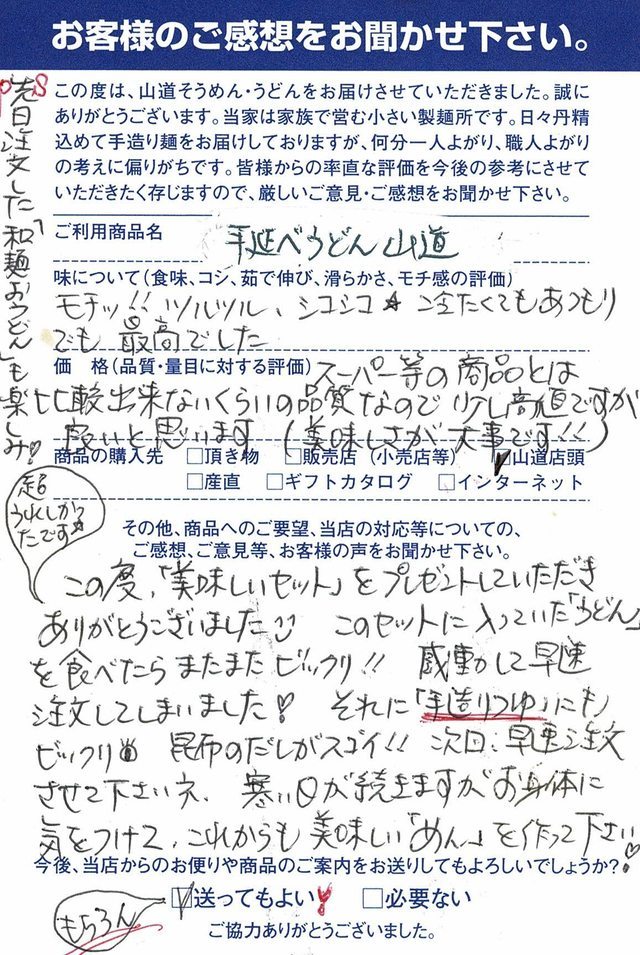 お客様のご感想をお聞かせ下さい。
PS 先日注文した「和麺おうどん」も楽しみ！
この度は、山道そうめん・うどんをお届けさせていただきました。誠に
ありがとうございます。当家は家族で営む小さい製麺所です。日々丹精
込めて手造り麺をお届けしておりますが、何分一人よがり、職人よがり
の考えに偏りがちです。皆様からの率直な評価を今後の参考にさせて
いただきたく存じますので、厳しいご意見・ご感想をお聞かせ下さい。
ご利用商品名 手延べうどん山道
味について(食味、コシ、茹で伸び、滑らかさ、モチ感の評価)
モチッ!! ツルツル、シコシコ☆ 冷たくてもあつもり
でも最高でした
価　格(品質・量目に対する評価) スーパー等の商品とは
比較出来ないくらいの品質なので少し高値ですが
良いと思います (美味しさが大事です!!)
商品の購入先 □頂き物 □販売店(小売店等) ☑山道店頭
□産直 □ギフトカタログ □インターネット
その他、商品へのご要望、当店の対応等についての、
ご感想、ご意見等、お客様の声をお聞かせ下さい。
超うれしかったです☆
この度、「美味しいセット」をプレゼントしていただき
ありがとうございました このセットに入っていた「うどん」
を食べたらまたまたビックリ!! 感動して早速
注文してしまいました！ それに「手造りつゆ」にも
ビックリ 昆布のだしがスゴイ!! 次回、早速注文
させて下さいネ。寒い日が続きますがお身体に
気をつけて、これからも美味しい「めん」を作って下さい！
今後、当店からのお便りや商品のご案内をお送りしてもよろしいでしょうか?
もちろん ☑送ってもよい！ □必要ない
ご協力ありがとうございました。